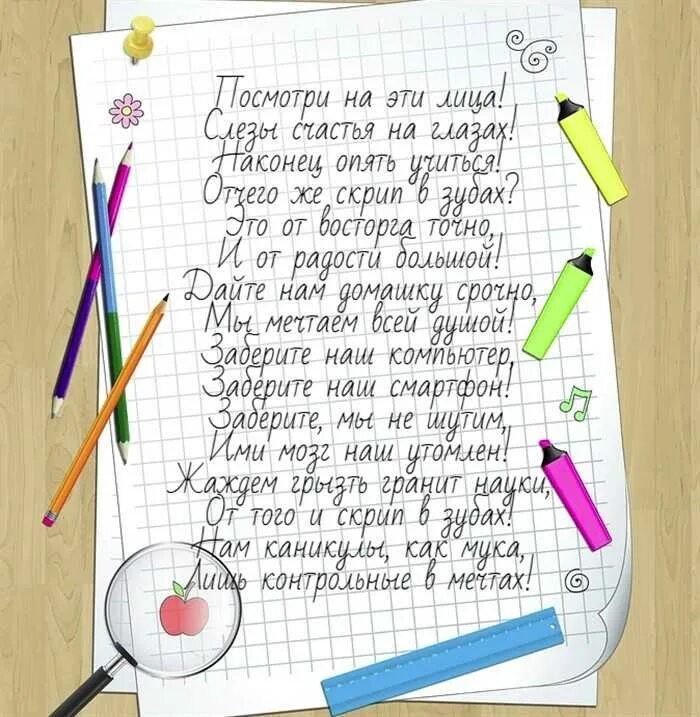 Посмотри на эти лица!
Слезы счастья на глазах!
Наконец опять учиться!
Отчего же скрип в зубах?
Это от восторга точно,
И от радости большой!
Дайте нам домашку срочно,
Мы мечтаем всей душой!
Заберите наш компьютер,
Заберите наш смартфон!
Заберите, мы не шутим,
Ими мозг наш утомлен!
Жаждем грызть гранит науки,
От того и скрип в зубах!
Нам каникулы, как мука,
Лишь контрольные в мечтах!